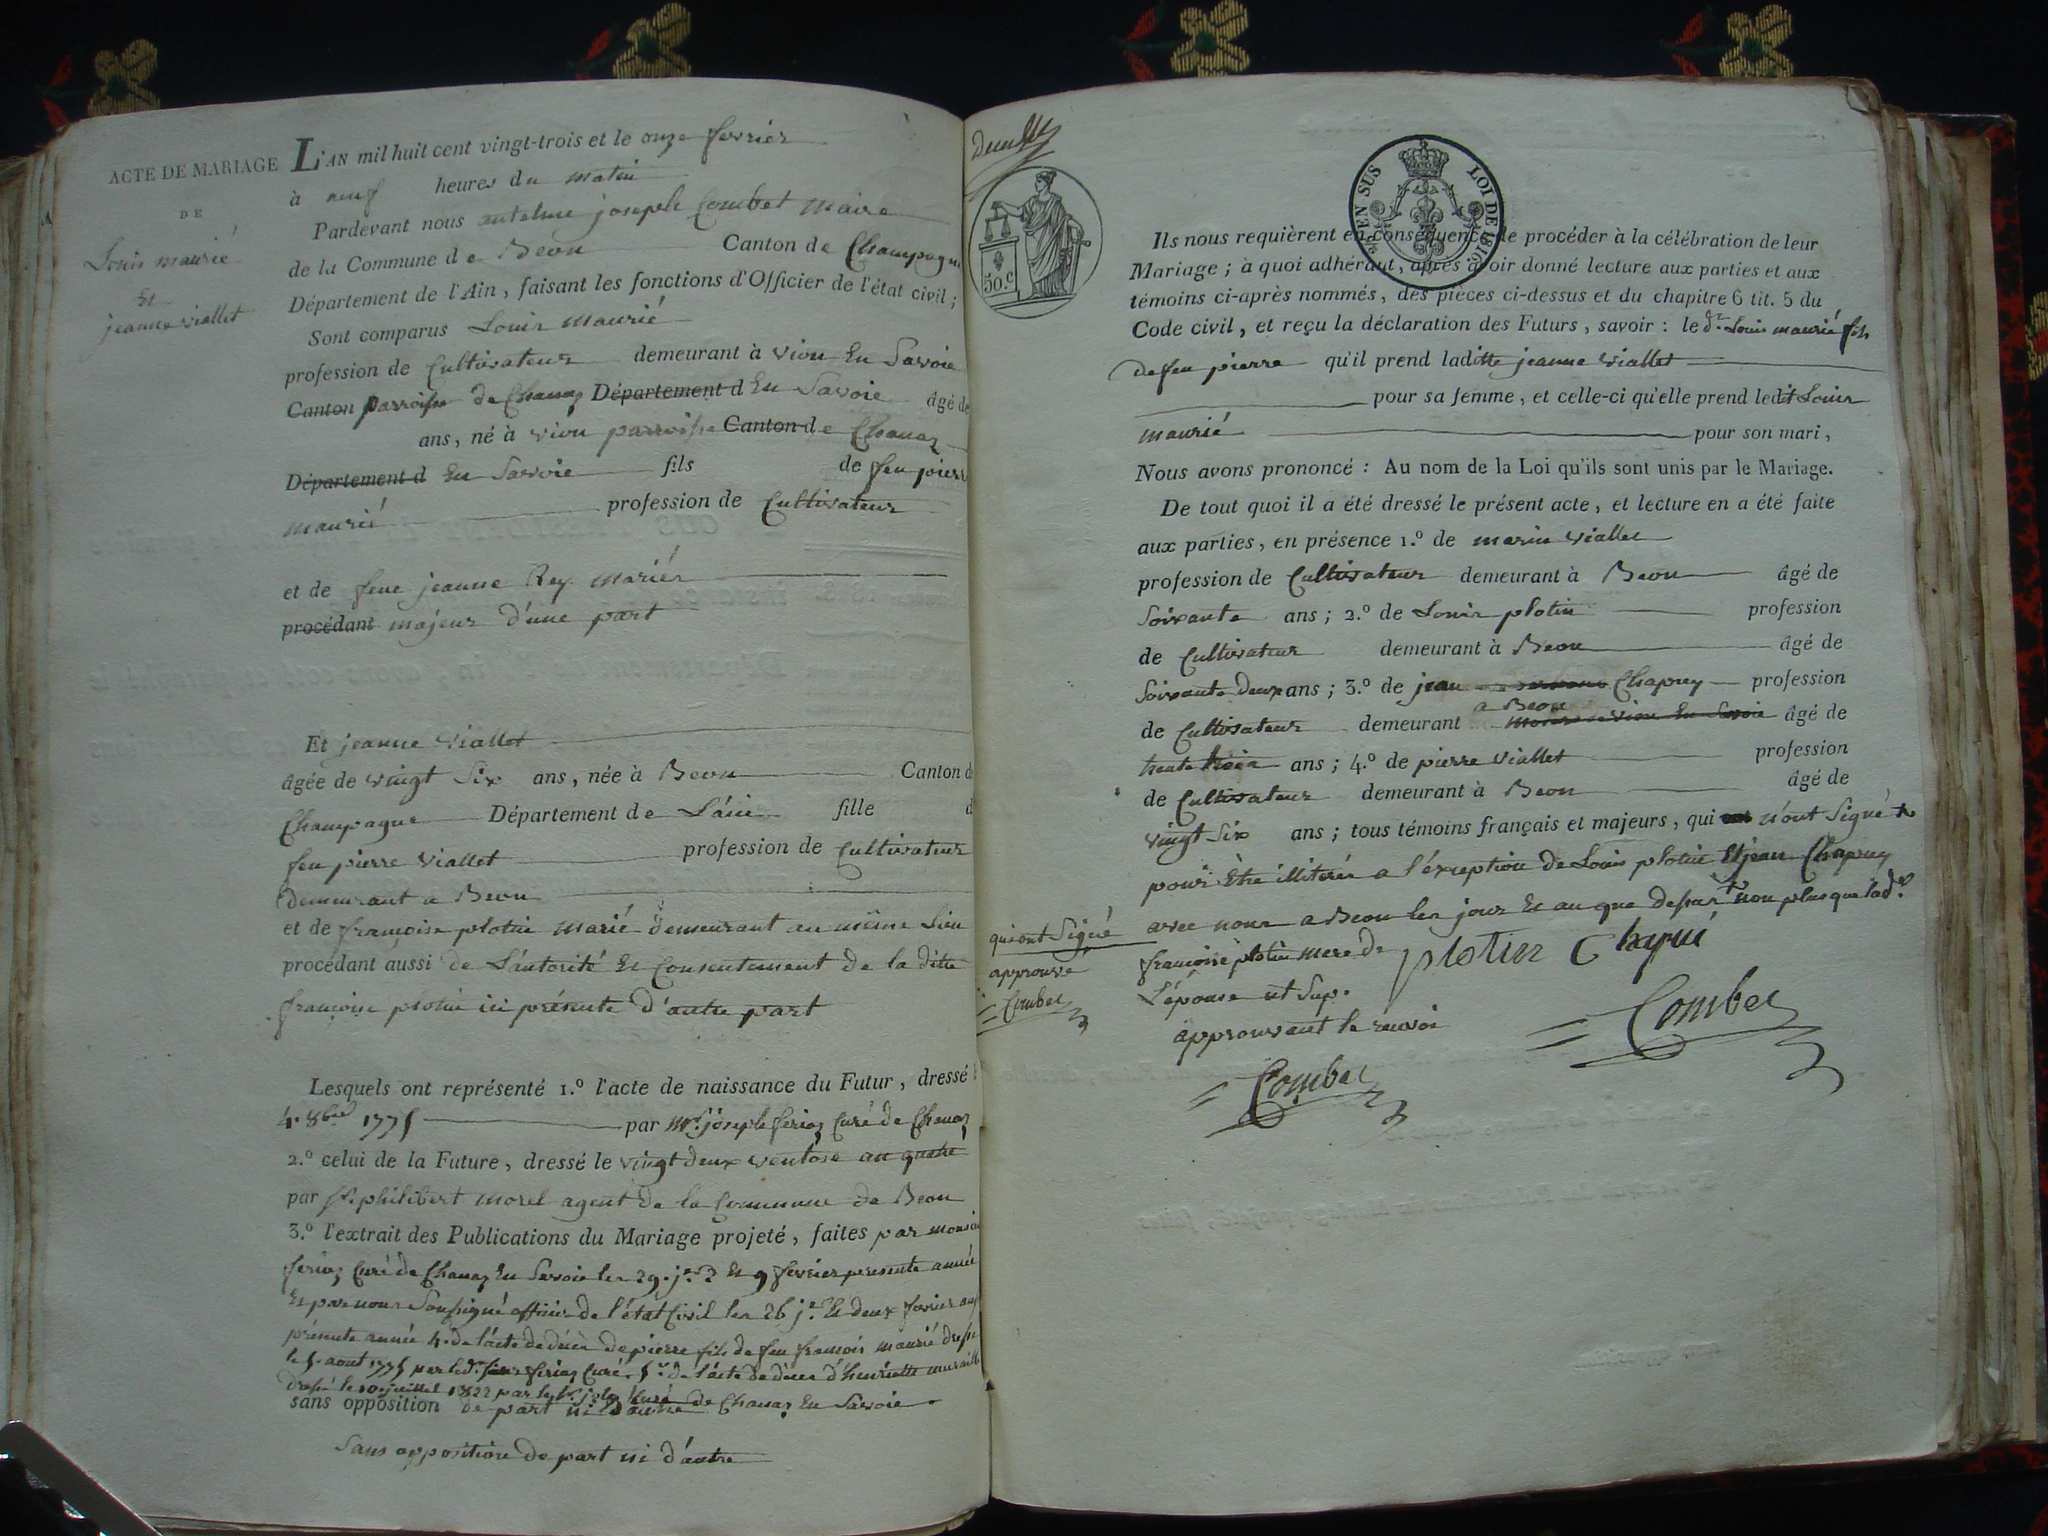 ACTE DE MARIAGE
DE
Louis maurié
Et
jeanne viallet
L'AN mil huit cent vingt-trois et le onze fevrier
à neuf heures du matin
Pardevant nous antelme joseph Combet maire
de la Commune de Beon Canton de Champagne
Département de l'Ain, faisant les fonctions d'Officier de l'état civil;
Sont comparus Louis maurié
profession de Cultivateur demeurant à vion En Savoie
Canton parroisse de Chanaz Département d En Savoie âgé de
ans, né à vion parroisse Canton de Chanaz
Département d En Savoie fils de feu pierre
maurié profession de Cultivateur
et de feue jeanne Rey mariés
procédant majeur d'une part
Et jeanne viallet
âgée de vingt Six ans, née à Beon Canton de
Champagne Département de L'ain fille d
feu pierre viallet profession de Cultivateur
demeurant a Beon
et de françoise plotin marié demeurant au même Lieu
procédant aussi de L'autorité Et Consentement de la ditte
françoise plotin ici présente d'autre part
Lesquels ont représenté 1.º l'acte de naissance du Futur, dressé
4. 8bre 1775 par Mr. joseph feriaz Curé de Chanaz
2.º celui de la Future, dressé le vingt deux ventose an quatre
par Sr. philibert morel agent de la Commune de Beon
3.º l'extrait des Publications du Mariage projeté, faites par monsieur
feriaz Curé de Chanaz En Savoie les 29. jer Et 9 fevrier presente année
Et par nous Soussigné officier de l'état Civil les 26 jer Et deux fevrier
présente année 4.º de l'acte de décès de pierre fils de feu françois maurié dressé
le 5. aout 1775 par led. feriaz Curé. 5.º de l'acte de décès d'henriette
dressé le 10 juillet 1822 par Curé
sans opposition de part ni d'autre de Chanaz En Savoie.
Sans opposition de part ni d'autre
EN SUS LOI DE 1816
50.C
Ils nous requièrent en conséquence de procéder à la célébration de leur
Mariage; à quoi adhérant, après avoir donné lecture aux parties et aux
témoins ci-après nommés, des pièces ci-dessus et du chapitre 6 tit. 5 du
Code civil, et reçu la déclaration des Futurs, savoir: le dr. Louis maurié fils
de feu pierre qu'il prend laditte jeanne viallet
pour sa femme, et celle-ci qu'elle prend ledit Louis
maurié pour son mari,
Nous avons prononcé: Au nom de la Loi qu'ils sont unis par le Mariage.
De tout quoi il a été dressé le présent acte, et lecture en a été faite
aux parties, en présence 1.º de marin viallet
profession de Cultivateur demeurant à Beon âgé de
Soixante ans; 2.º de Louis plotin profession
de Cultivateur demeurant à Beon âgé de
Soixante deux ans; 3.º de jean Chapuy profession
a Beon
de Cultivateur demeurant vion En Savoie âgé de
trente trois ans; 4.º de pierre viallet profession
de Cultivateur demeurant à Beon âgé de
vingt Six ans; tous témoins français et majeurs, qui n'ont Signé
pour être illiterés a l'exception de Louis plotin Et jean Chapuy
avec nous a Beon les jour Et an que dessus non plus que lad.e
françoise plotin mere de
L'épouse ut Sup.
approuvant le renvoi
plotin Chapui
Combet
Combet
qui ont Signé
approuvé
Combet